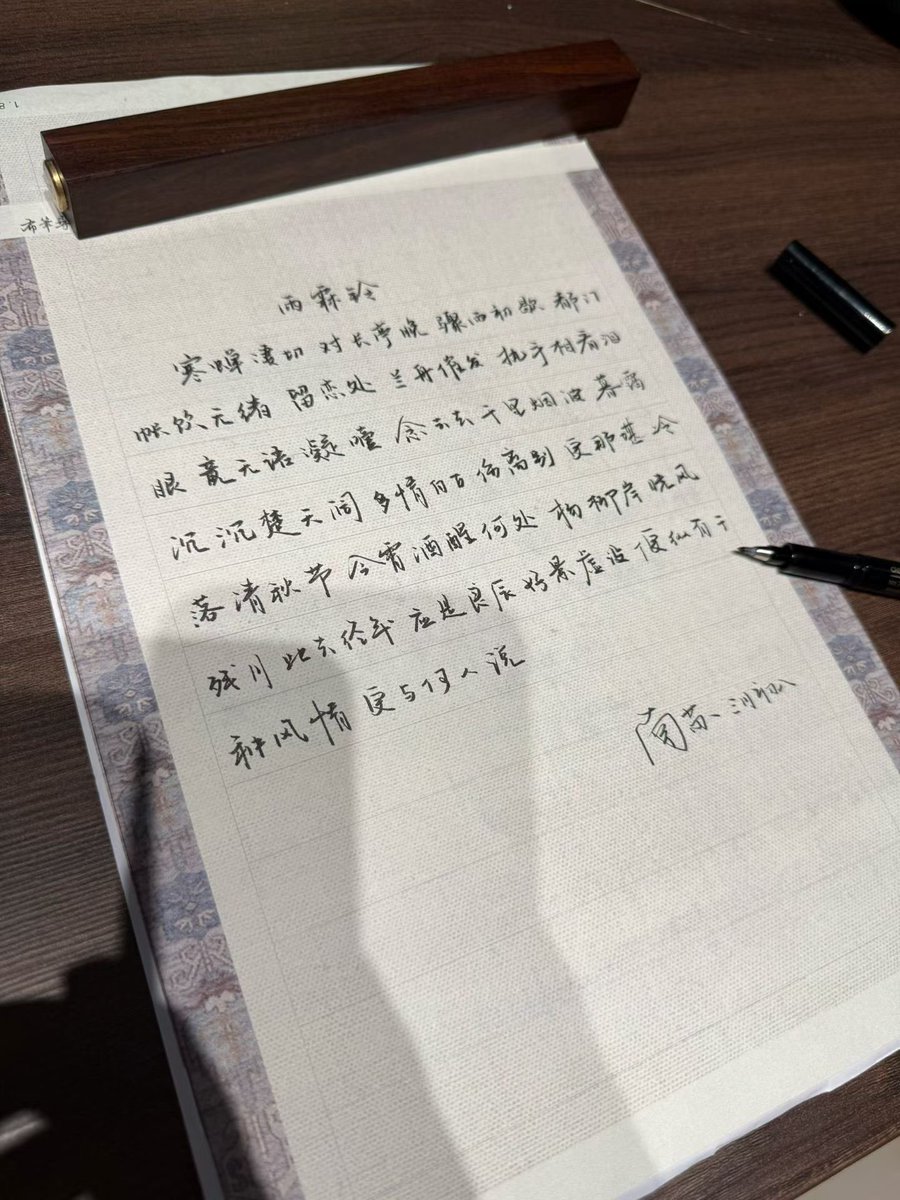 1.8
布苹
雨霖铃
寒蝉凄切 对长亭晚 骤雨初歇 都门
帐饮无绪 留恋处 兰舟催发 执手相看泪
眼 竟无语凝噎 念去去千里烟波 暮霭
沉沉楚天阔 多情自古伤离别 更那堪冷
落清秋节 今宵酒醒何处 杨柳岸晓风
残月 此去经年 应是良辰好景虚设 便纵有千
种风情 更与何人说